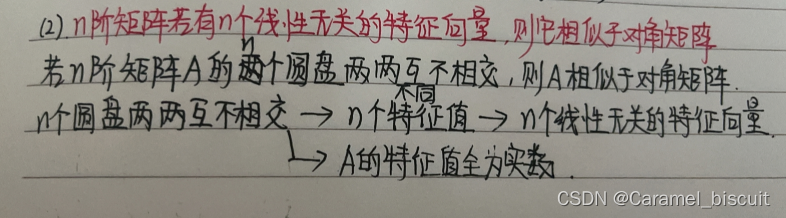 (2) n阶矩阵若有n个线性无关的特征向量,则它相似于对角矩阵
若n阶矩阵A的n个圆盘两两互不相交,则A相似于对角矩阵.
n个圆盘两两互不相交 → n个不同特征值 → n个线性无关的特征向量.
→ A的特征值全为实数.
CSDN @Caramel_biscuit